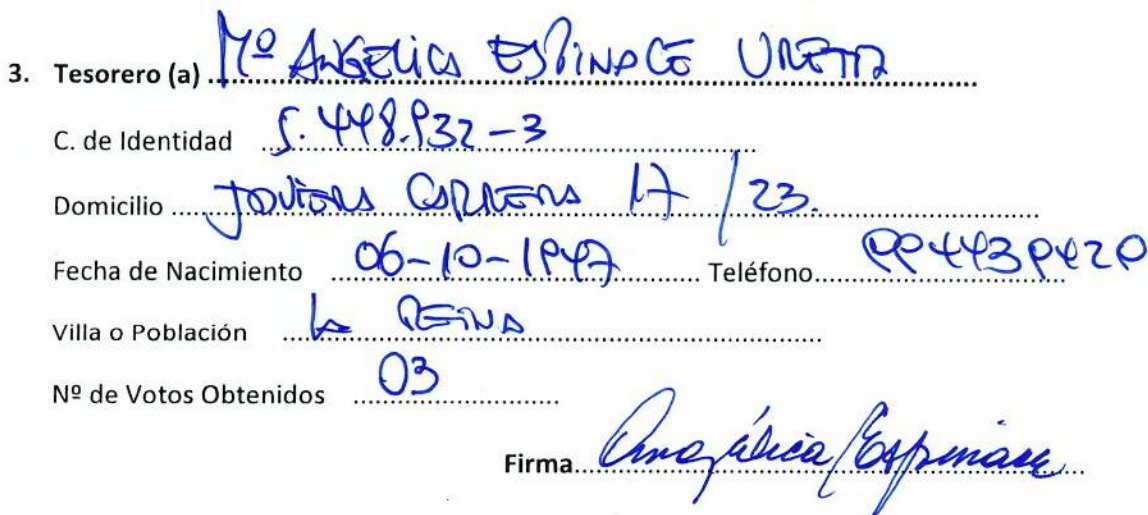 3. Tesorero (a) Mº ANGELICA ESPINACE URETA
C. de Identidad 5.448.932-3
Domicilio JAVIERA CARRERA 17 / 23.
Fecha de Nacimiento 06-10-1947 Teléfono 994439429
Villa o Población LA REINA
Nº de Votos Obtenidos 03
Firma Angélica Espinace